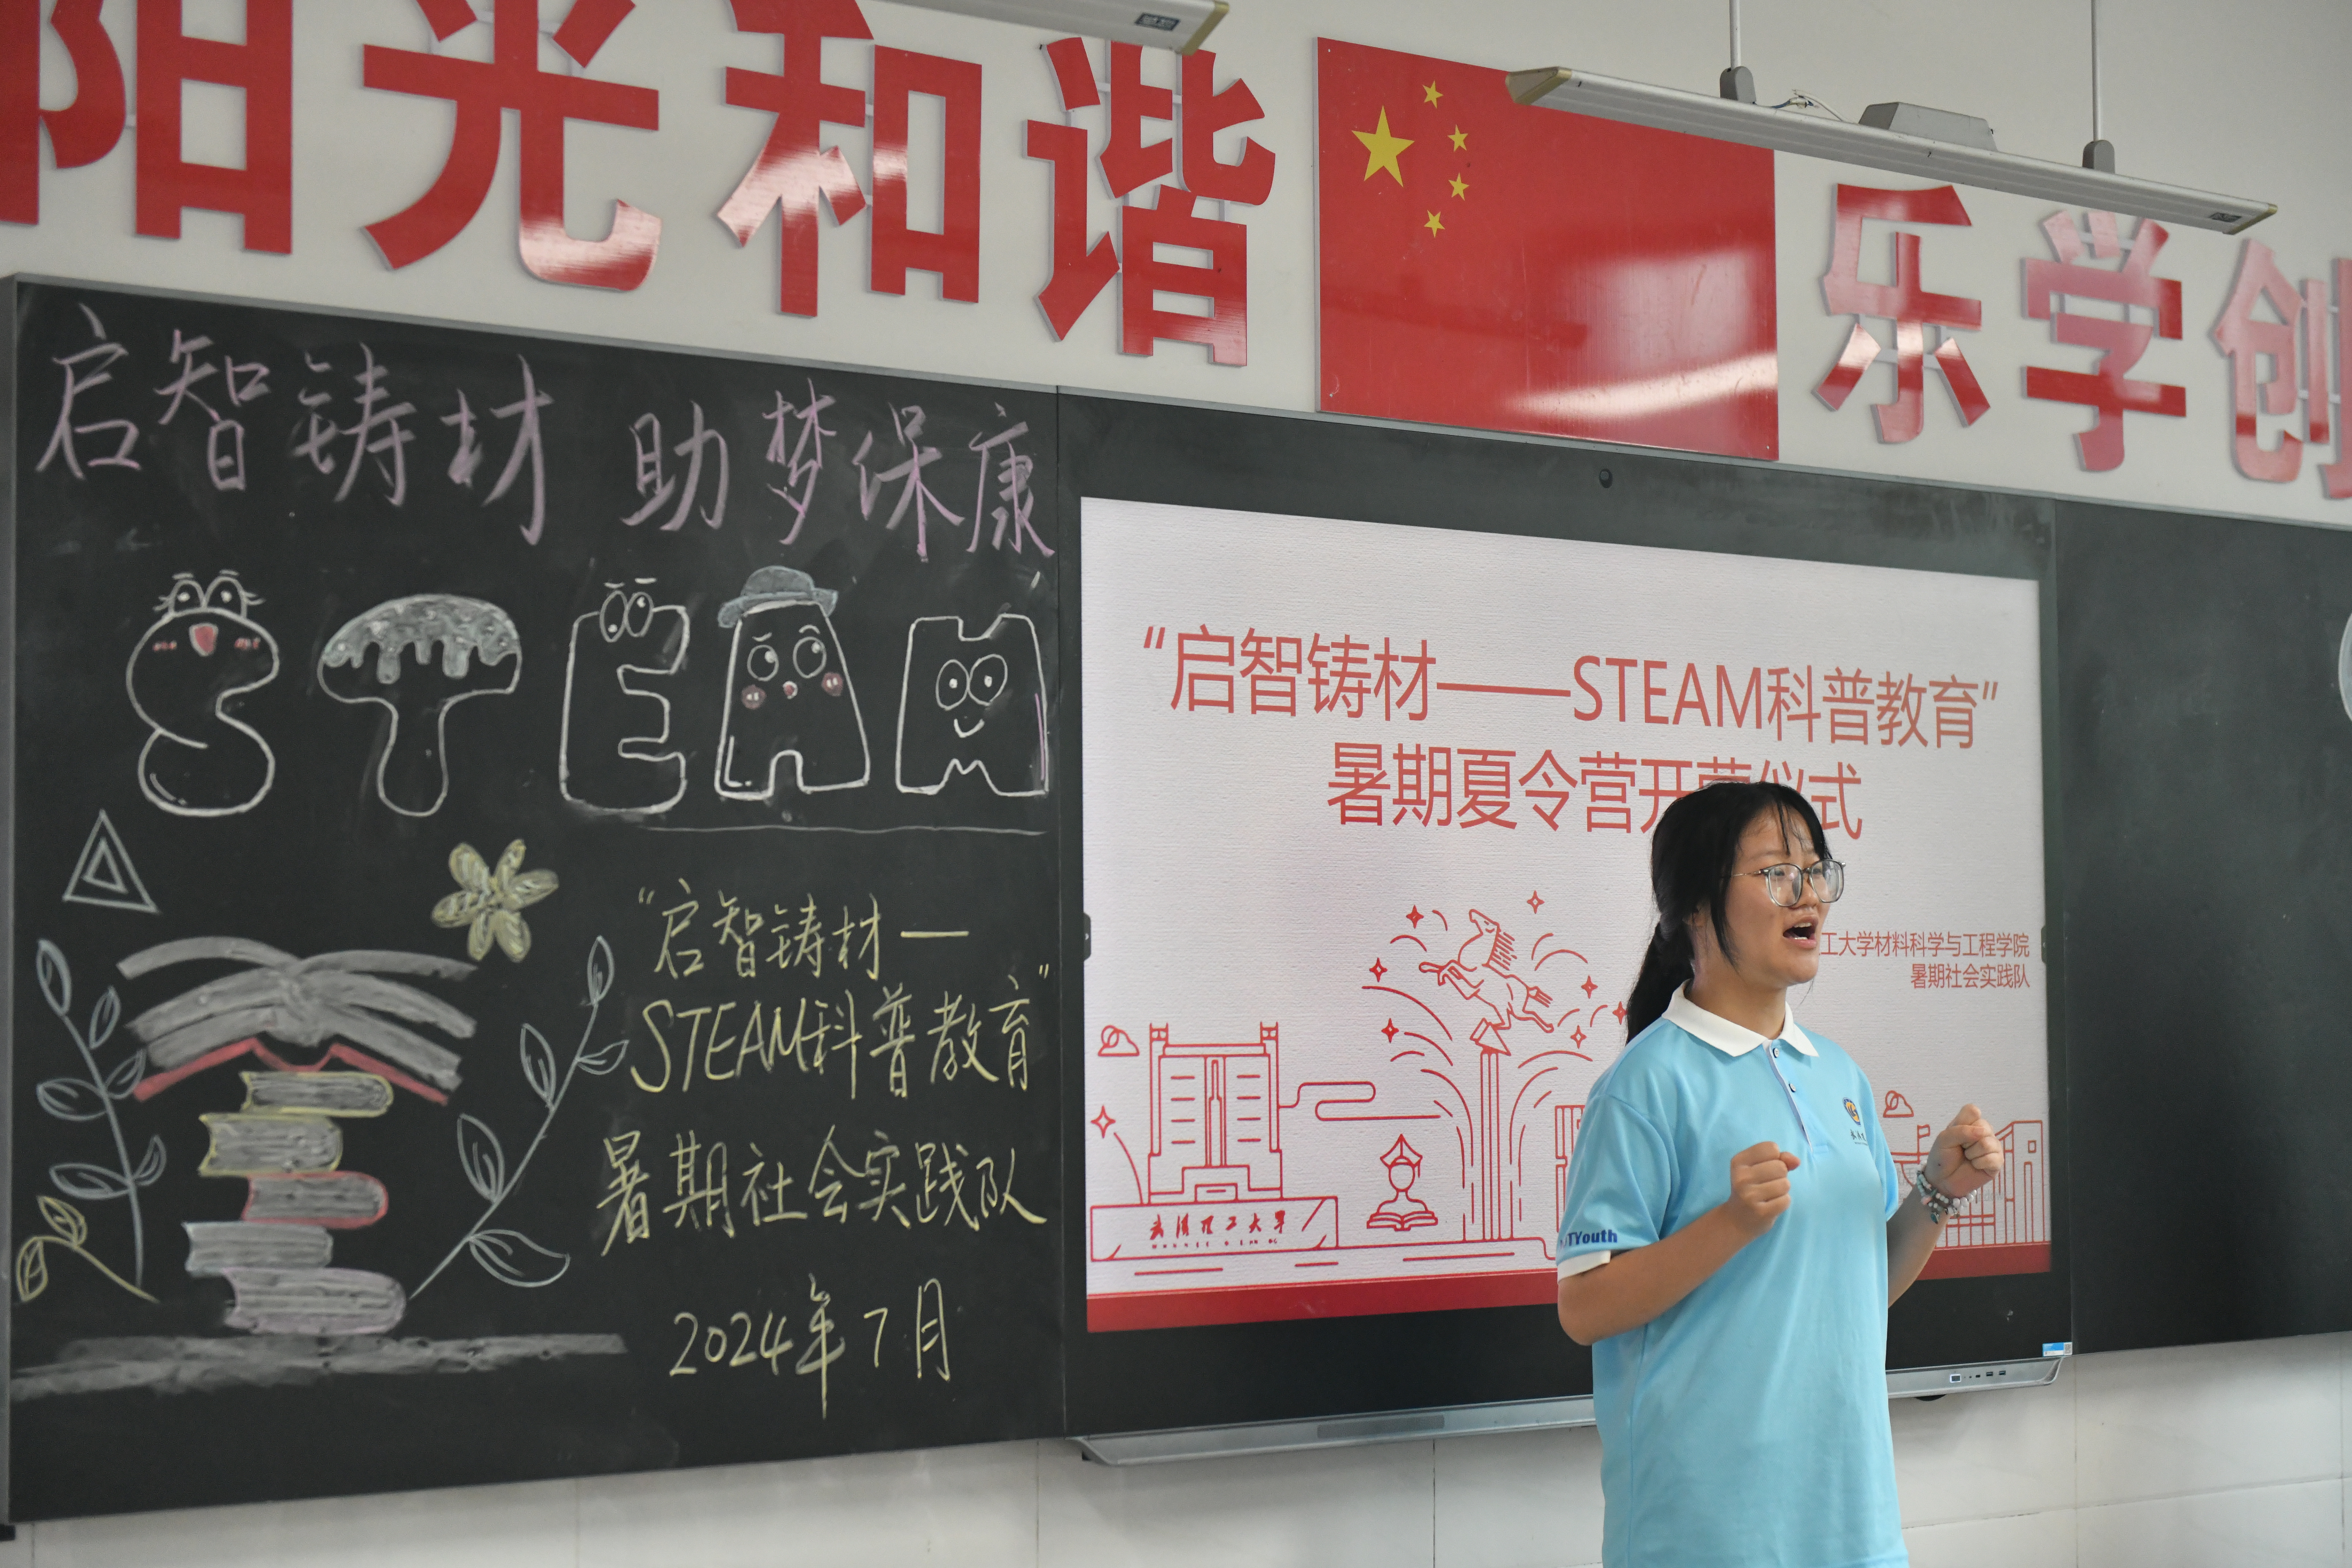 阳光和谐 乐学创
启智铸材 助梦保康
STEAM
“启智铸材—
STEAM科普教育”
暑期社会实践队
2024年7月
“启智铸材——STEAM科普教育”
暑期夏令营开营仪式
工大学材料科学与工程学院
暑期社会实践队
武汉理工大学
TYouth